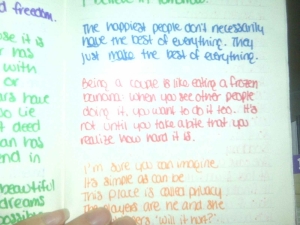 d freedom.
se it is
r has
with
or
ars have
so lie
t deed
an has
end in
beautiful
dreams
possible
I believe in tomorrow.
The happiest people don't necessarily
have the best of everything. They
just make the best of everything.
Being a couple is like eating a frozen
banana: when you see other people
doing it, you want to do it too. It's
not until you take a bite that you
realize how hard it is.
I'm sure you can imagine
It's simple as can be
This place is called privacy
The players are me and she
"Will it hurt?"